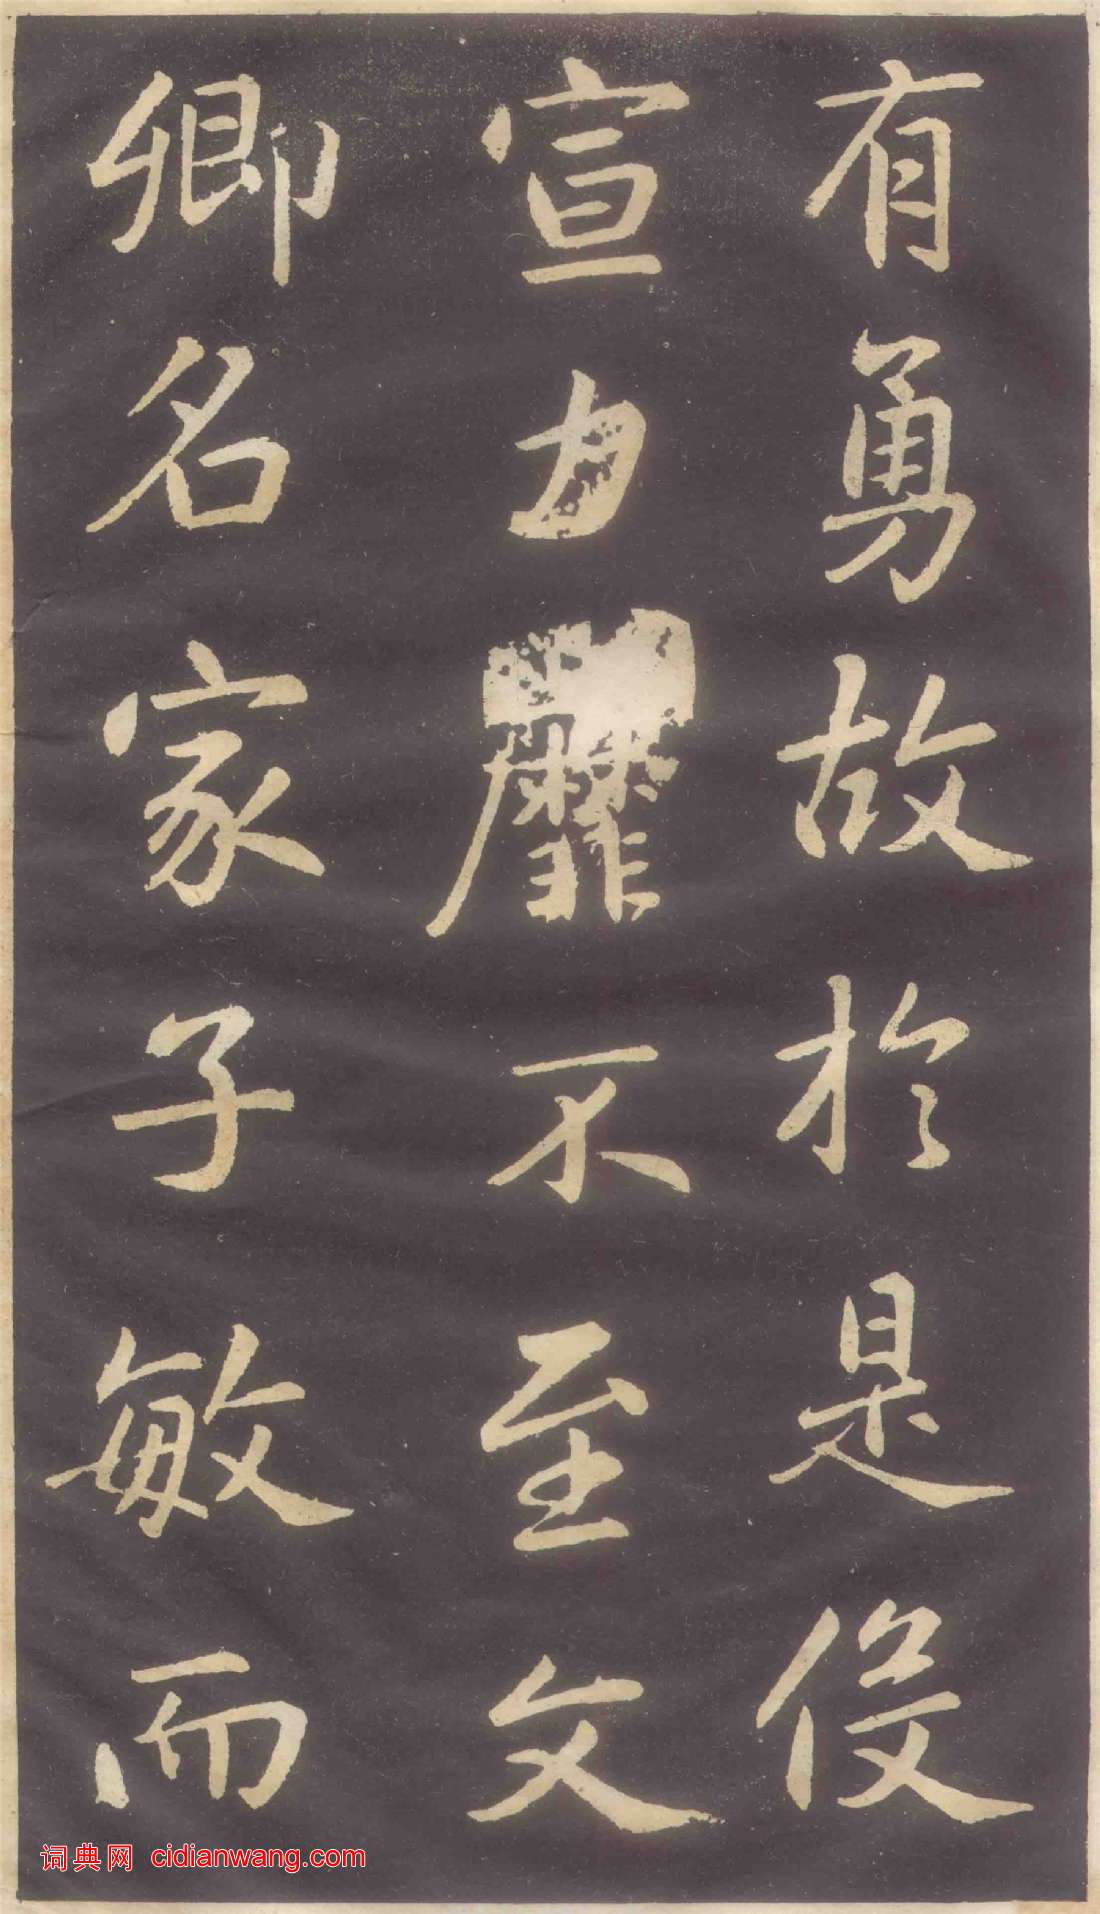 有勇故於是役
宣力靡不至文
卿名家子敏而
词典网 cidianwang.com